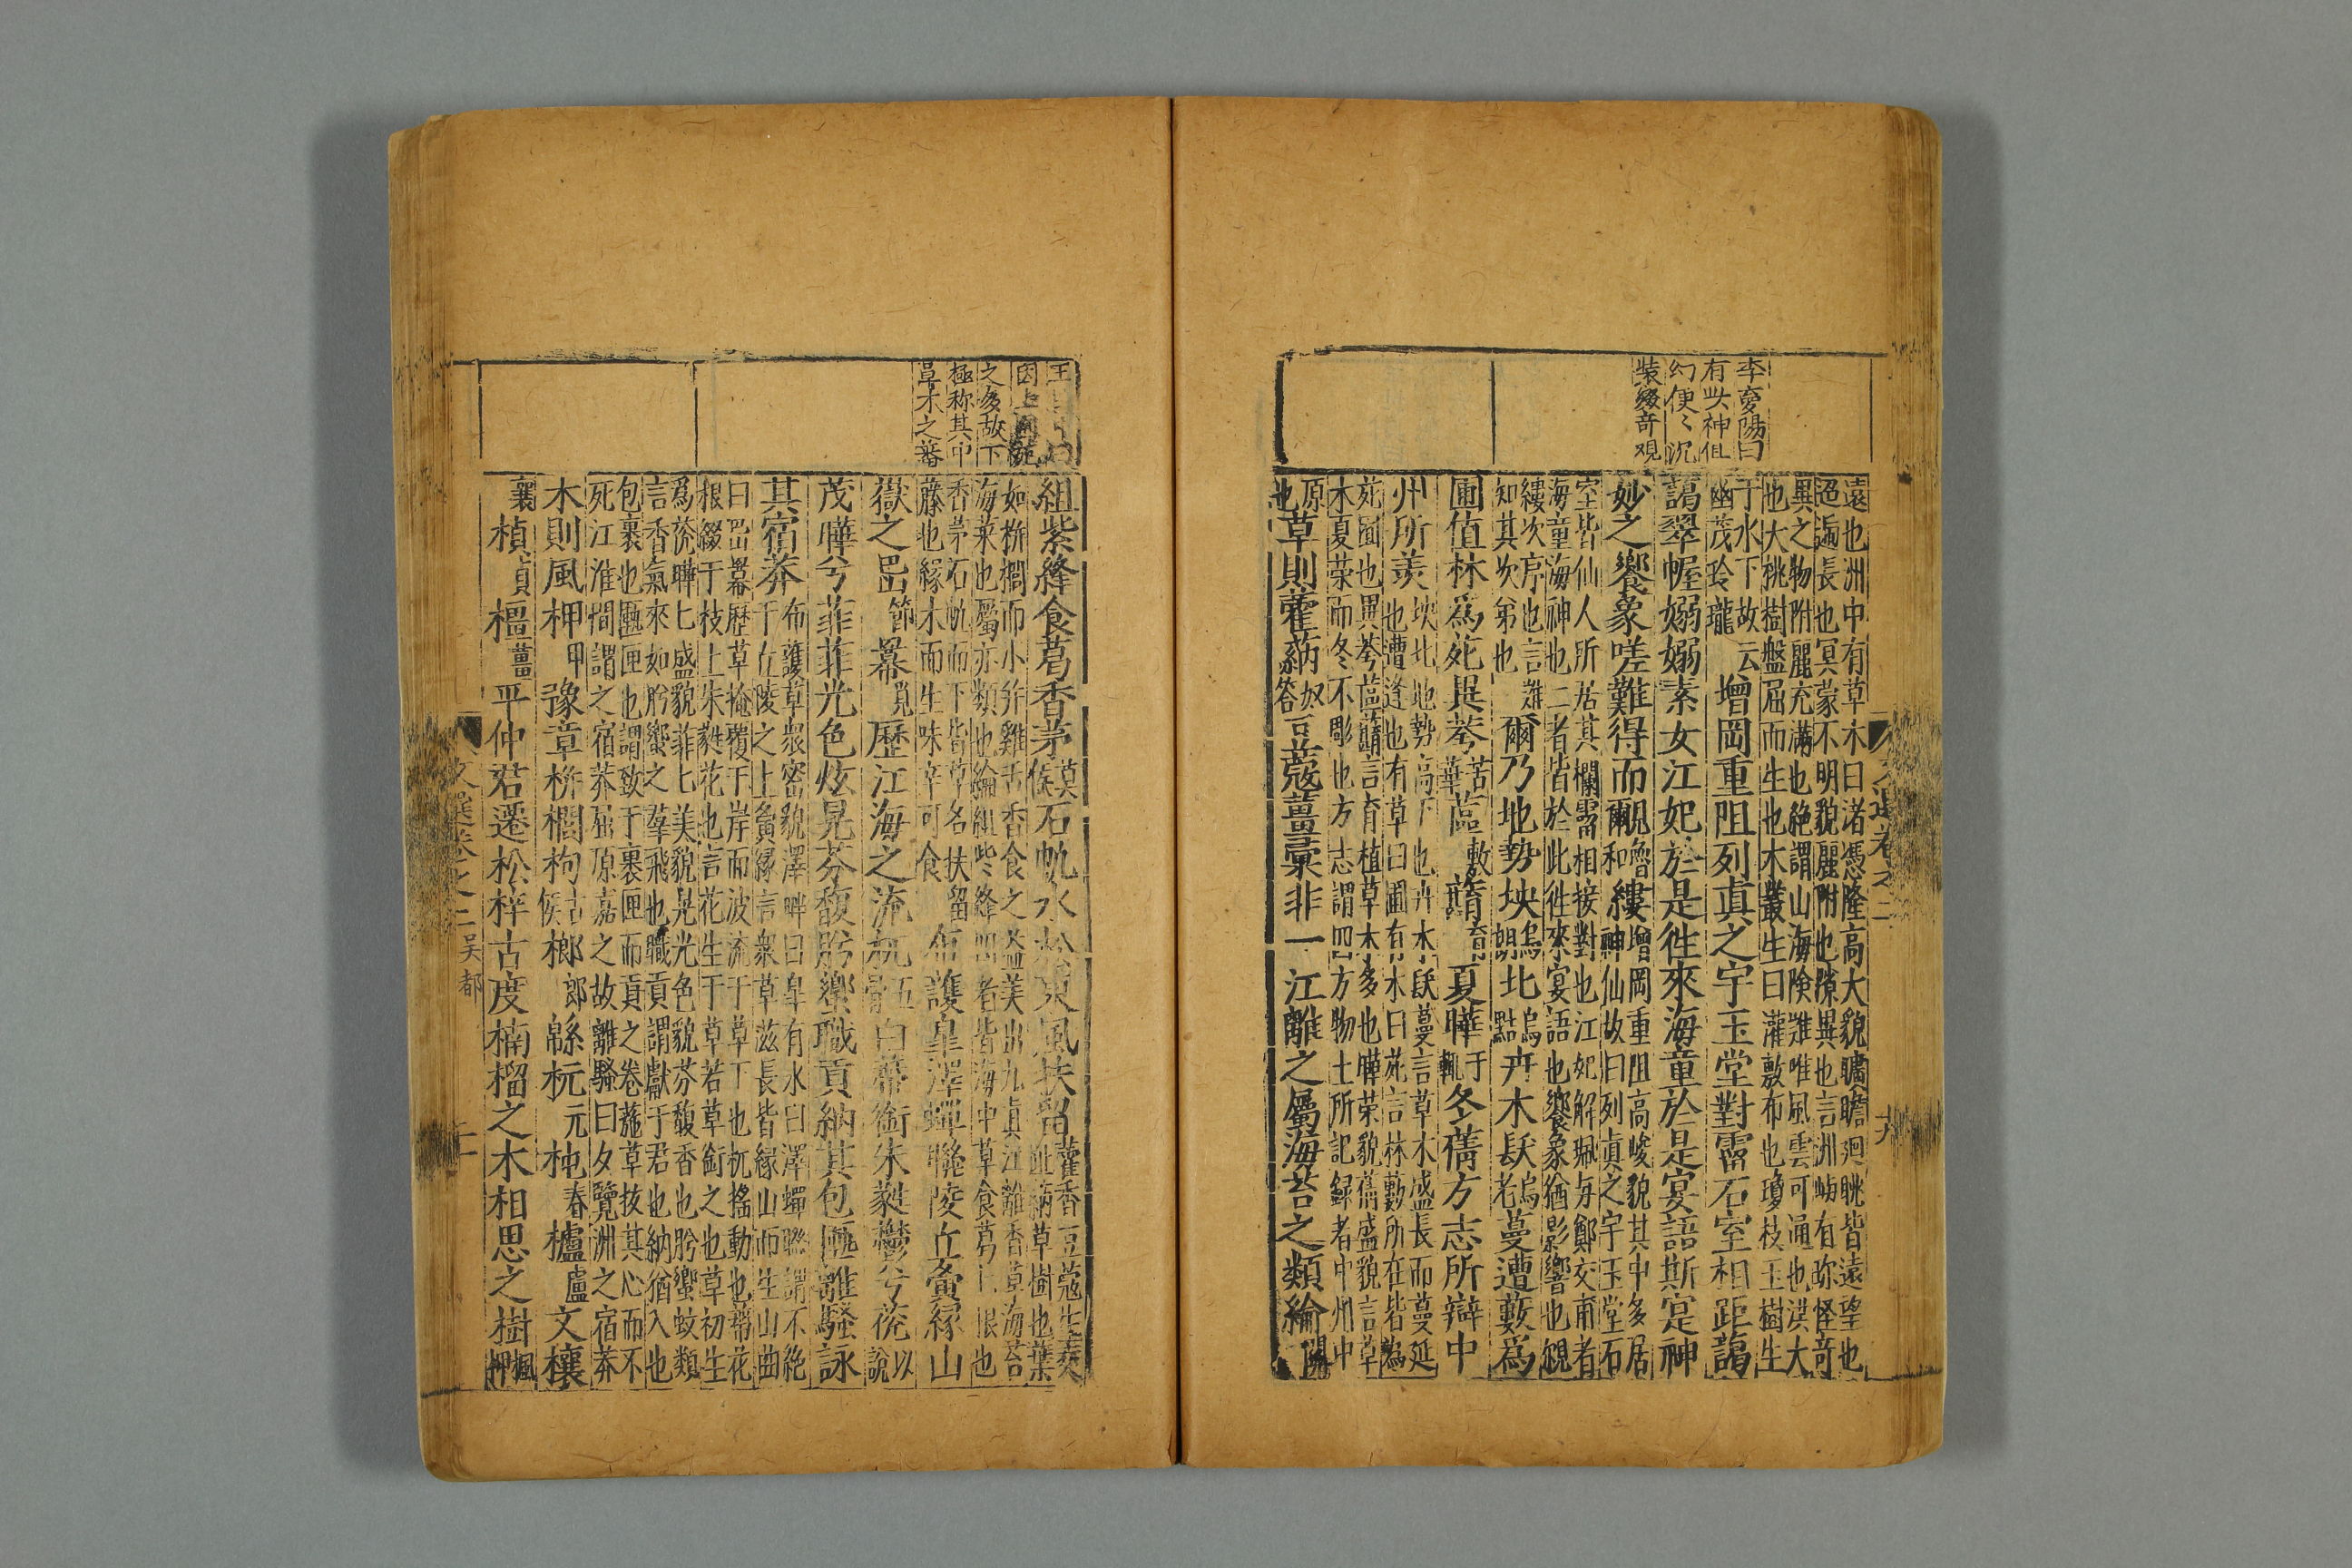 李㝢陽曰
有此神但
幻便々沉
裝綴奇观
遠也洲中有草木曰渚憑隆高大貌曠瞻迥眺皆遠望也
迢遞長也冥蒙不明貌麗附也隙異也言洲㠀有珎怪竒
異之物附麗充滿也絶謂山海險難唯風雲可通也洪大
也大桃樹盤屈而生也木叢生曰灌敷布也瓊枝玉樹生
于水下故云
幽茂玲瓏
增岡重阻列眞之宇玉堂對霤石室相距藹
藹翠幄嫋嫋素女江妃於是徃來海童於是宴語斯寔神
妙之響象嗟難得而覶縷
增岡重阻高峻貌其中多居
神仙故曰列眞之宇玉堂石
室皆仙人所居其欄霤相接對也江妃解珮与鄭交甫者
海童海神也二者皆於此徃來宴語也響象猶影響也覶
縷次序也言難
知其次第也
爾乃地勢坱北卉木镺蔓遭藪爲
圃值林爲苑異荂蓲蘛夏曄冬蒨方志所辯中
州所羨
坱北地勢高下也卉木镺蔓言草木盛長而蔓延
也遭逢也有草曰圃有木曰苑言林藪所在皆為
苑囿也異荂蓲蘛言育植草木多也曄荣貌蒨盛貌言草
木夏荣而冬不彫也方志謂四方物土所記録者中州中
原
也
草則藿蒳豆蔻薑彙非一江離之屬海苔之類綸
文選卷之二
十九
王
因上
之多故下
極称其中
草木之蕃
組紫絳食葛香茅石帆水松東風扶留
藿香豆蔻生交
趾蒳草樹也葉
如栟櫚而小弁雞舌香食之益美出九眞江離香草海苔
海菜也屬亦類也綸組紫絳四者皆海中草食葛上限也
香茅石帆而下皆草名扶留
藤也緣木而生味辛可食
布濩皋澤蟬聮陵丘夤緣山
嶽之岊幂歷江海之流扤白蔕銜朱蕤欝兮茷
茂曄兮菲菲光色炫晃芬馥肸蠁職貢納其包匭離騷詠
其宿莽
布濩草衆密貌澤畔曰皋有水曰澤蟬聮謂不絶
于丘陵之上夤緣言衆草滋長皆緣山而生山曲
曰岊幂歷草掩覆于岸而波流于草下也扤搖動也蔕花
根綴于枝上朱蕤花也言花生于草若草銜之也草初生
爲茷曄七盛貌菲七美貌晃光色貌芬馥香也肸蠁蚊類
言香氣來如肸蠁之羣飛也職貢謂獻于君也納猶入也
包裹也匭匣也謂致于裹匣而貢之卷葹草拔其心而不
死江淮間謂之宿莽屈原嘉之故離騷曰夕覽洲之宿莽
木則風柙豫章栟櫚枸榔緜杬杶櫨文欀
楨橿平仲君遷松梓古度楠榴之木相思之樹
文選卷之二
吴都
二十